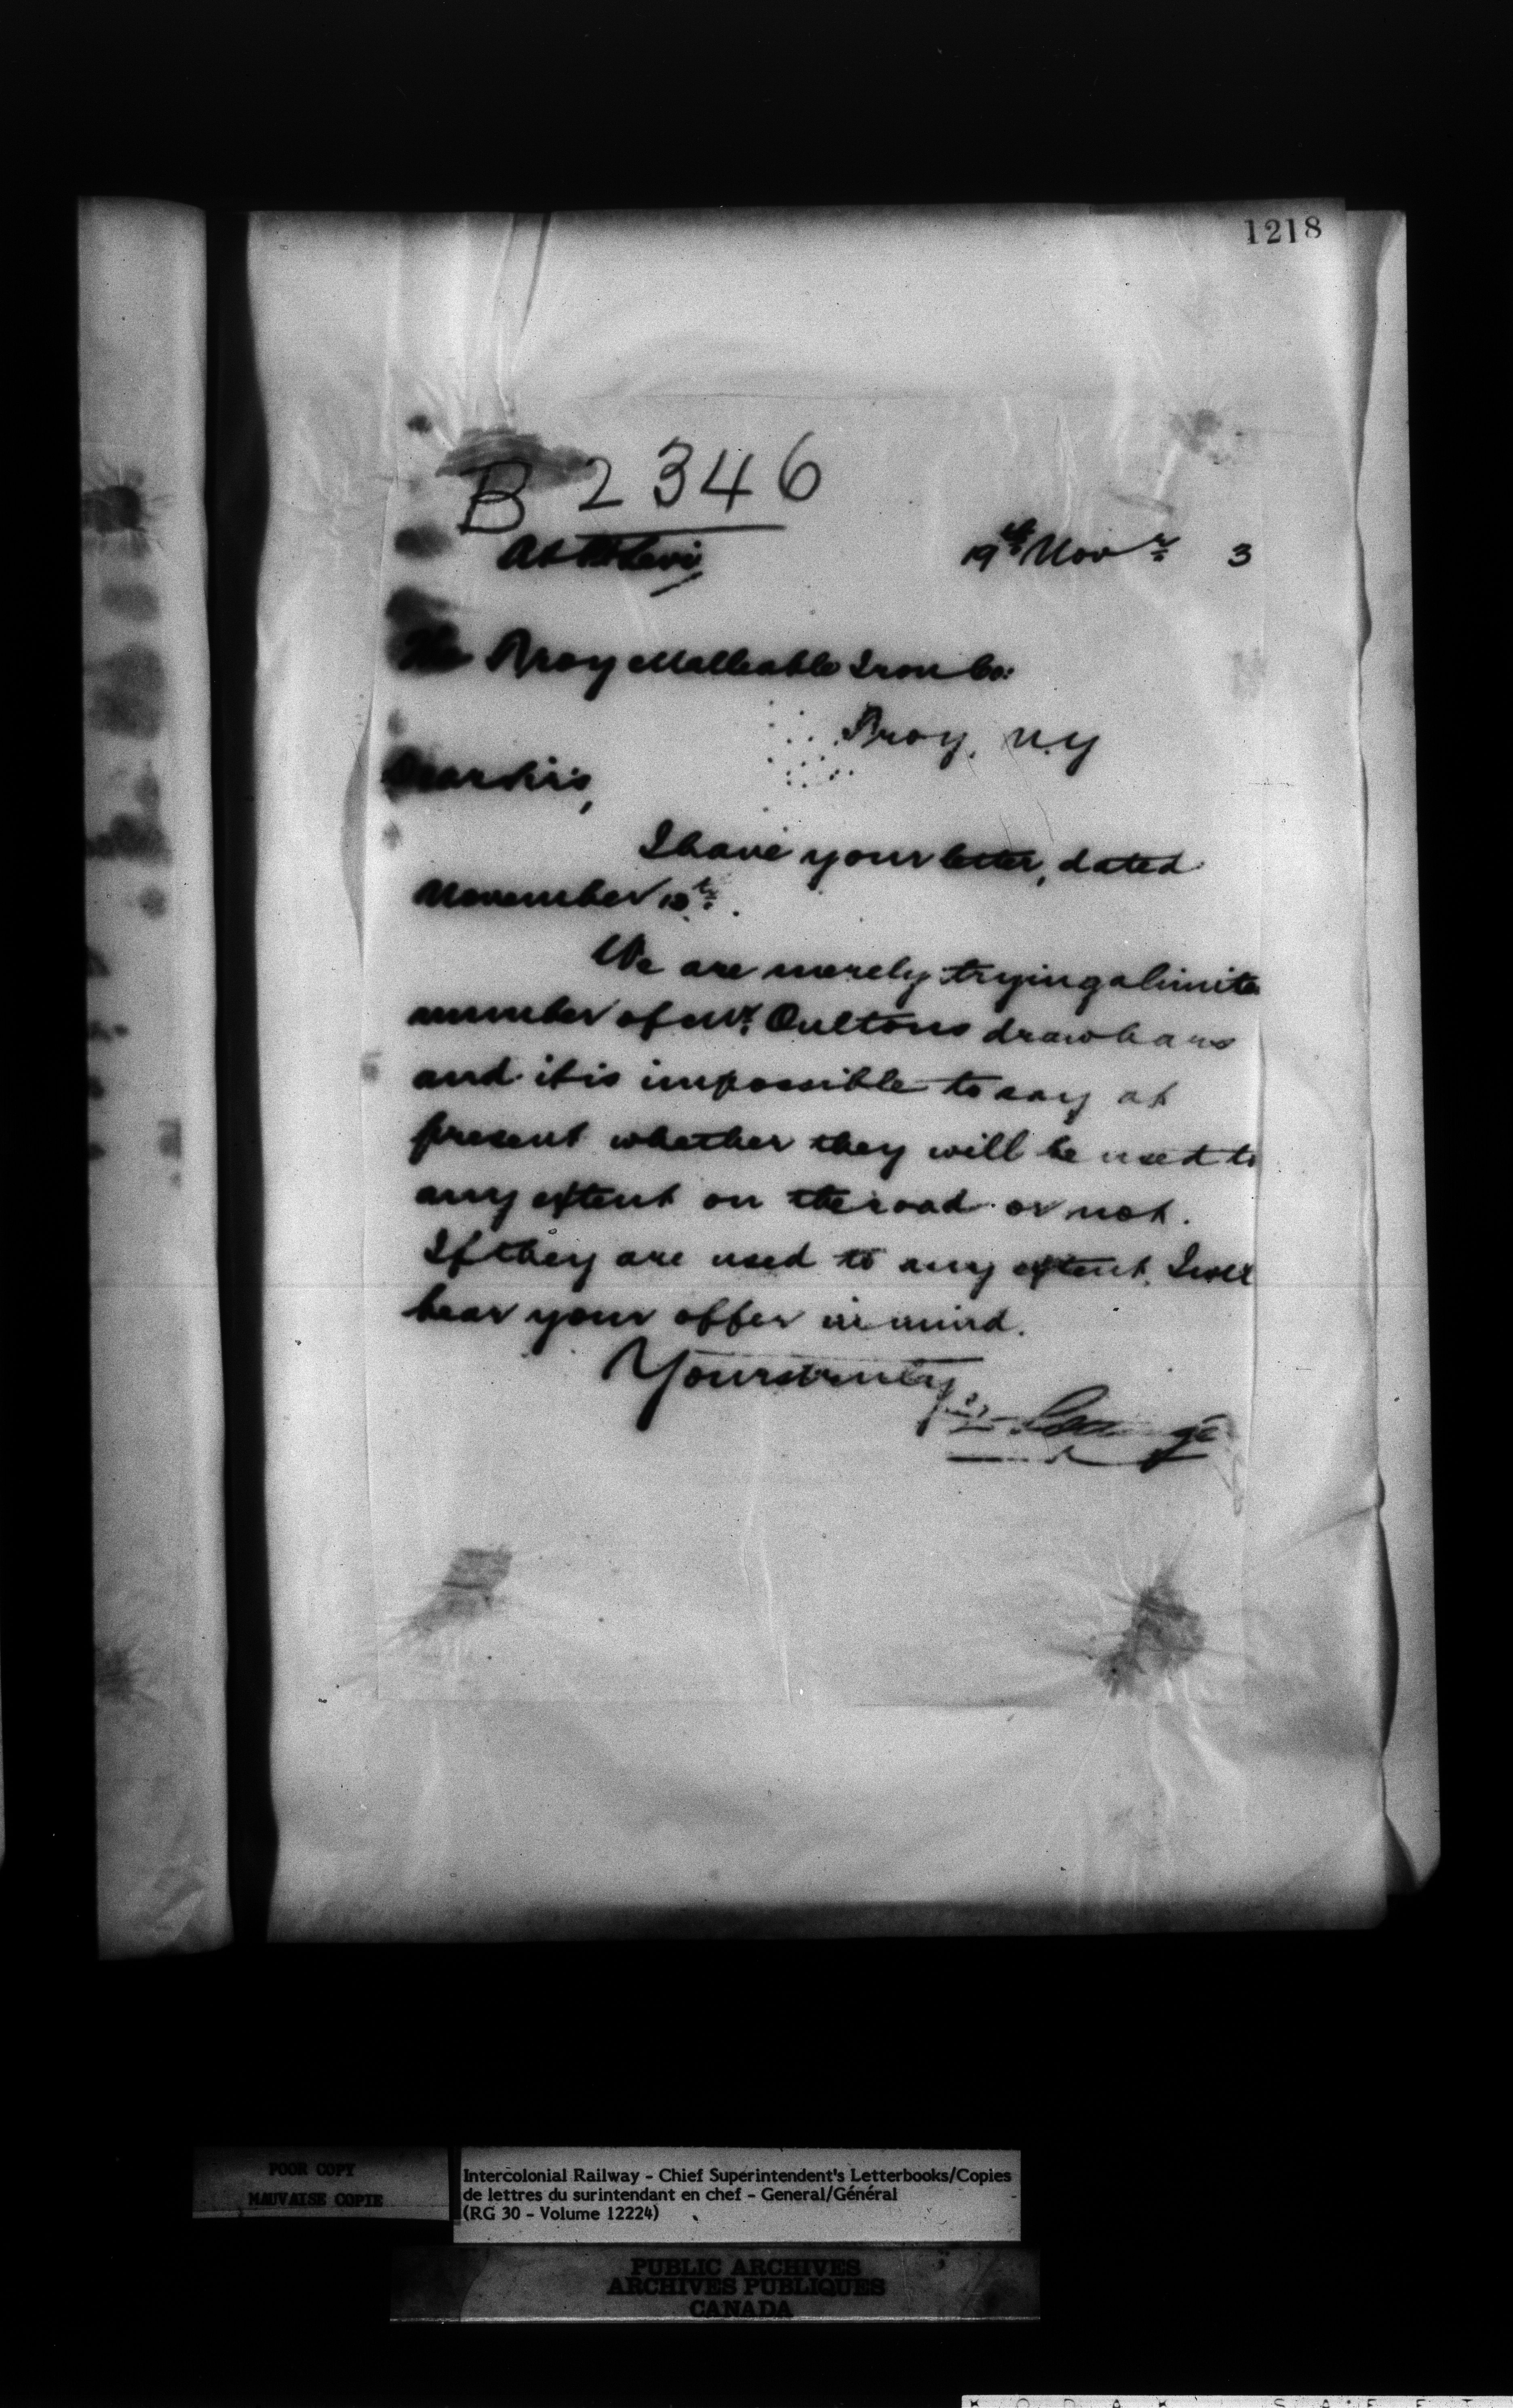 1218
B 2346
At Pt Levi
19th Novr 3
The Troy Malleable Iron Co:
Troy, N.Y
Dear Sirs,
I have your letter, dated
November 10th.
We are merely trying a limite
number of Mr. Oultons drawbars
and it is impossible to say at
present whether they will be used to
any extent on the road or not.
If they are used to any extent, I will
bear your offer in mind.
Yours truly
POOR COPY
MAUVAISE COPIE
Intercolonial Railway - Chief Superintendent's Letterbooks/Copies
de lettres du surintendant en chef - General/Général
(RG 30 - Volume 12224)
PUBLIC ARCHIVES
ARCHIVES PUBLIQUES
CANADA